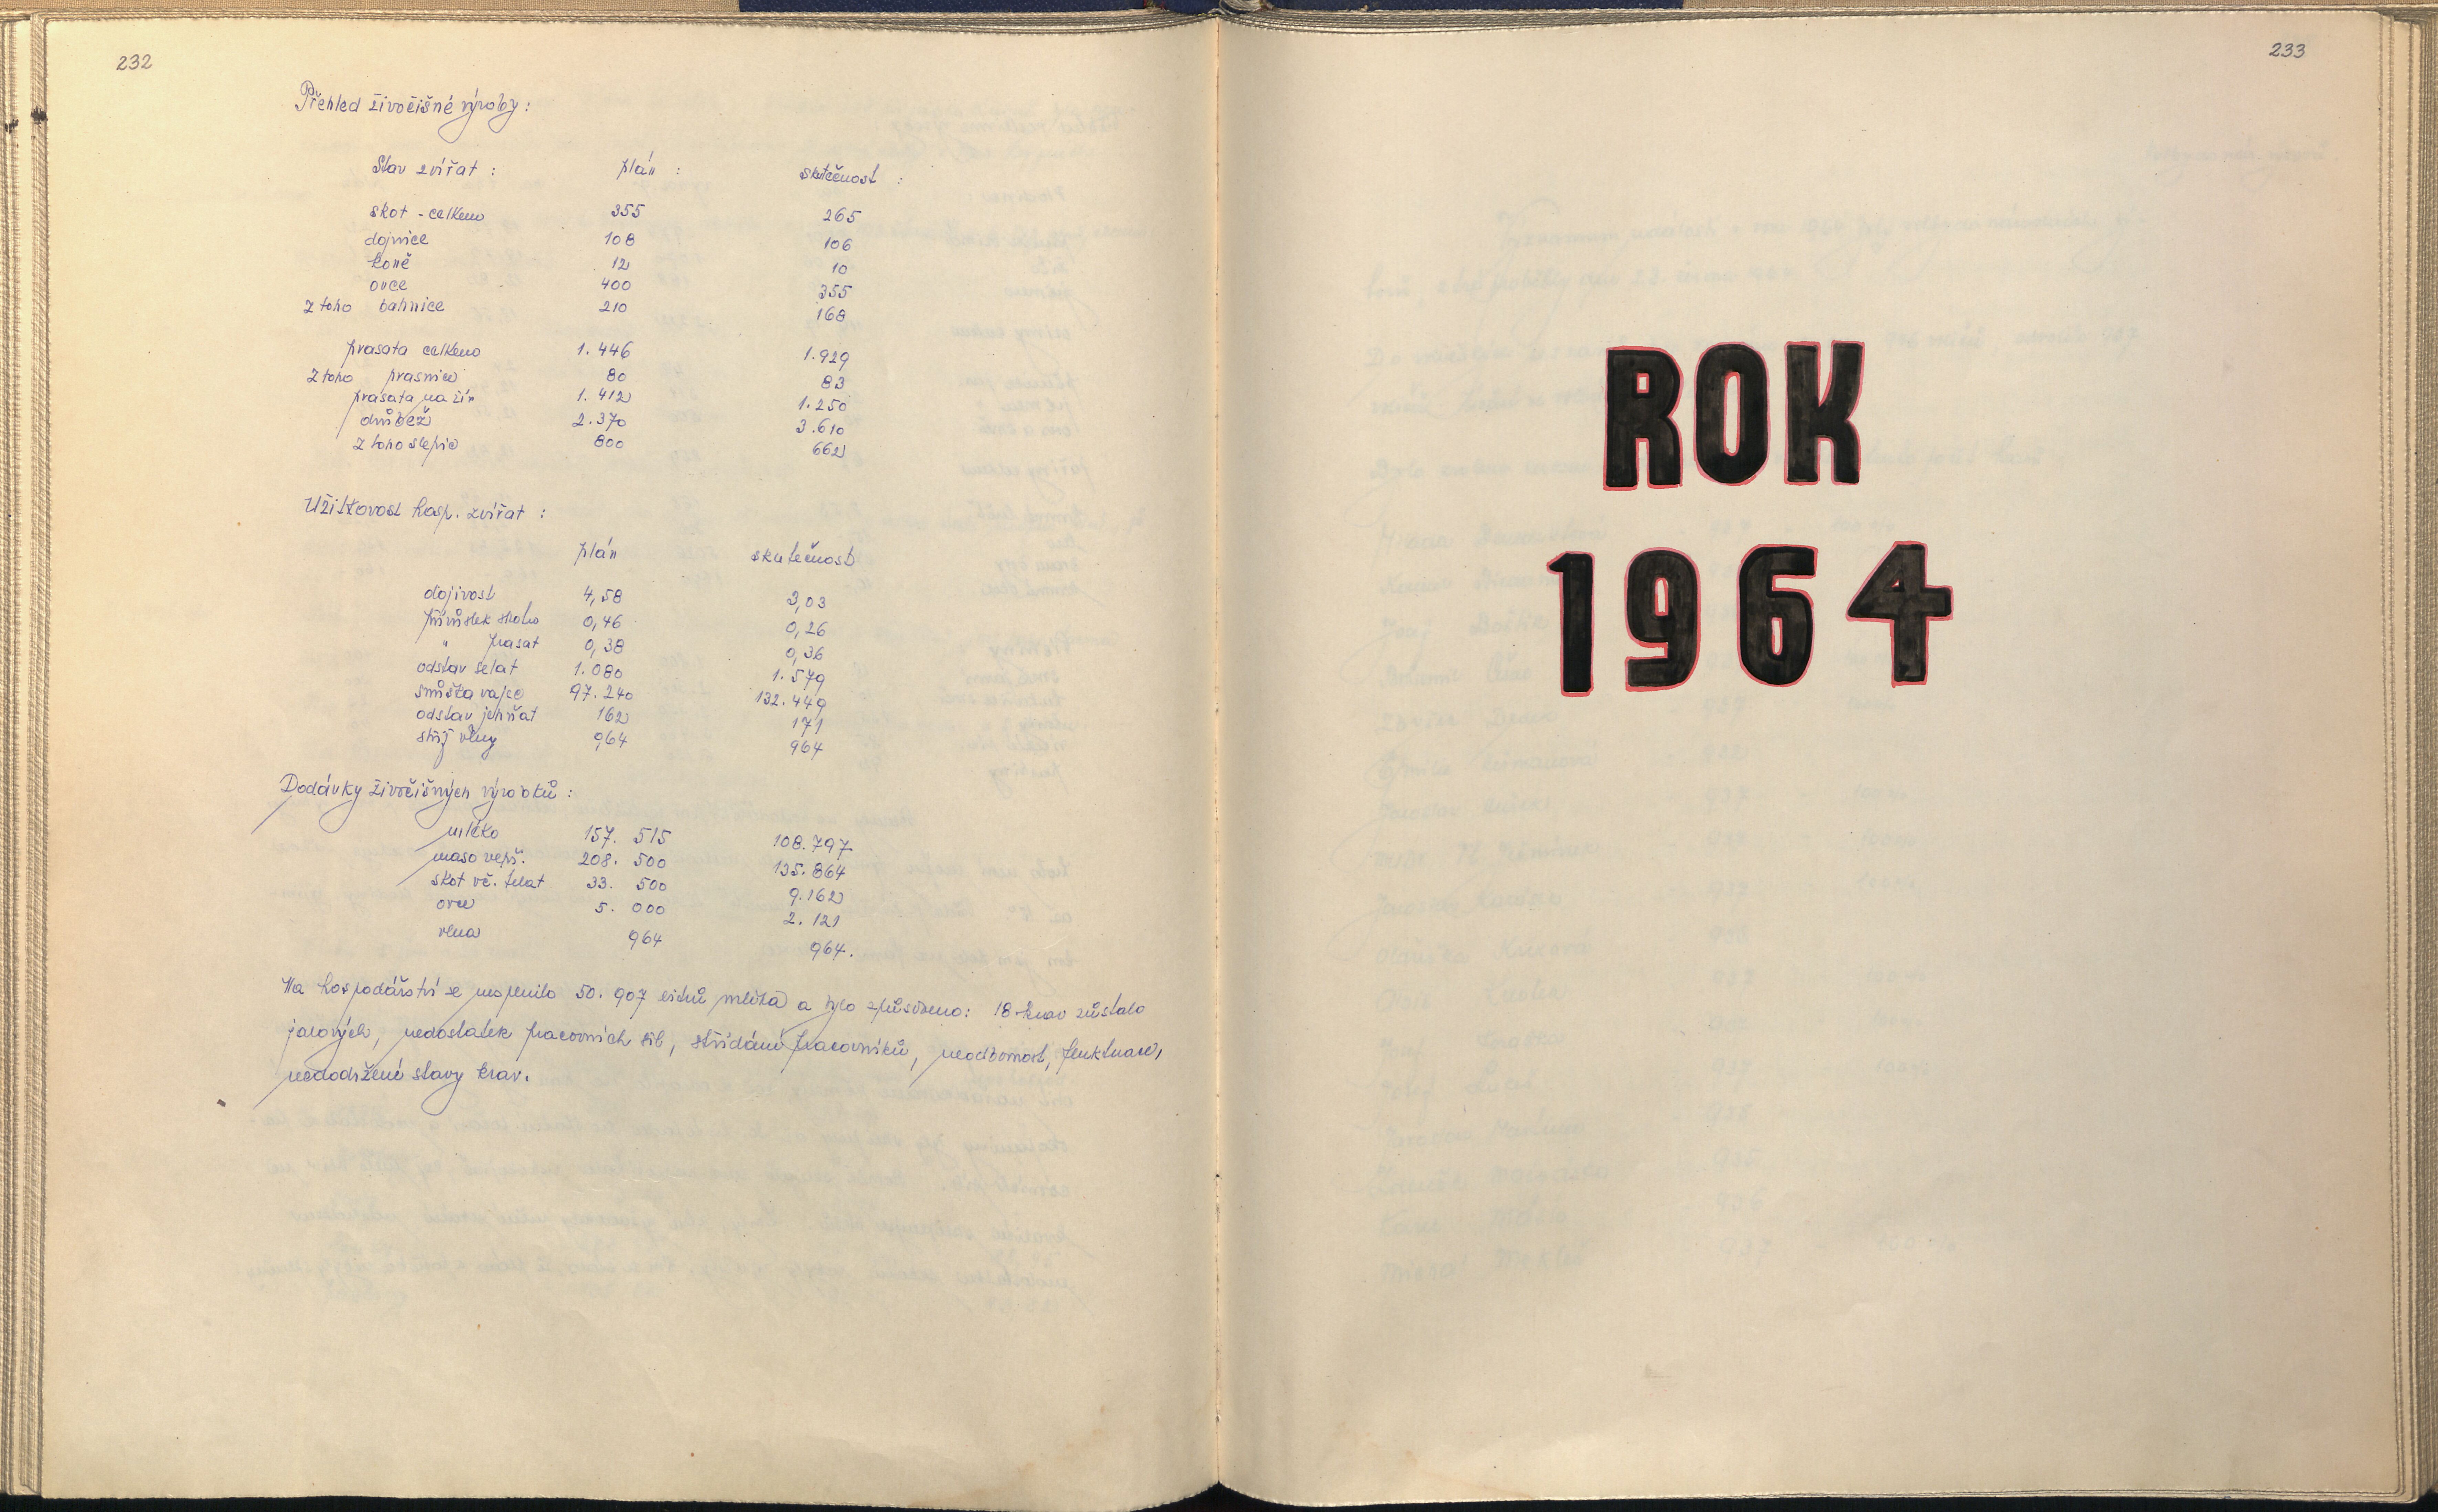 232
Přehled živočišné výroby:
Stav zvířat: plán: skutečnost:
skot - celkem 355 265
dojnice 108 106
koně 12 10
ovce 400 355
z toho bahnice 210 168
prasata celkem 1.446 1.929
z toho prasnice 80 83
prasata na žír 1.412 1.250
drůbež 2.370 3.610
z toho slepic 800 662
Užitkovost hosp. zvířat:
plán skutečnost
dojivost 4,58 3,03
přírůstek skotu 0,46 0,26
" prasat 0,38 0,36
odstav selat 1.080 1.579
snůška vajec 97.240 132.449
odstav jehňat 162 171
stříž vlny 964 964
Dodávky živočišných výrobků:
mléko 157. 515 108.797
maso vepř. 208. 500 135.864
skot vč. telat 33. 500 9.162
ovce 5. 000 2. 121
vlna 964 964.
Na hospodářství se nesplnilo 50. 907 litrů mléka a bylo způsobeno: 18 krav zůstalo
jalových, nedostatek pracovních sil, střídání pracovníků, neodbornost, fluktuace,
nedodržení stavy krav.
233
ROK
1964